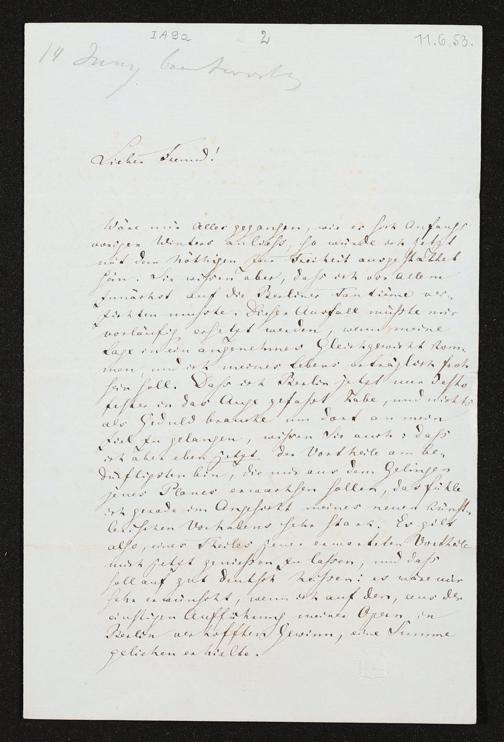 IA9a 2 11.6.53.
14 Juny beantwortet
Lieber Freund!
Wäre mir Alles gegangen, wie es sich Anfangs
vorigen Winters anließ, so würde ich jetzt
mit dem Nöthigen zur Freiheit ausgestattet
sein. Sie wissen aber, dass ich vor Allem
zunächst auf die Berliner Tantième ver-
zichten musste. Dieser Ausfall müßte mir
vorläufig ersetzt werden, wenn meine
Lage in ein angenehmes Gleichgewicht kom-
men, und ich meines Lebens erträglich froh
sein soll. Dass ich Berlin jetzt nur desto
fester in das Auge gefasst habe, und nichts
als Geduld brauche um dort an mein
Ziel zu gelangen, wissen Sie auch: dass
ich aber eben jetzt der Vortheile am be-
dürftigsten bin, die mir aus dem Gelingen
jenes Planes erwachsen sollen, das fühle
ich gerade im Angesicht meines neuen künst-
lerischen Vorhabens sehr stark. Es gilt
also, eines Theiles jener erwarteten Vortheile
mich jetzt genießen zu lassen, und dass
soll auf gut deutsch heissen: es wäre mir
sehr erwünscht, wenn ich auf den, aus der
einstigen Aufführung meiner Opern in
Berlin verhofften Gewinn, eine Summe
geliehen erhielte.